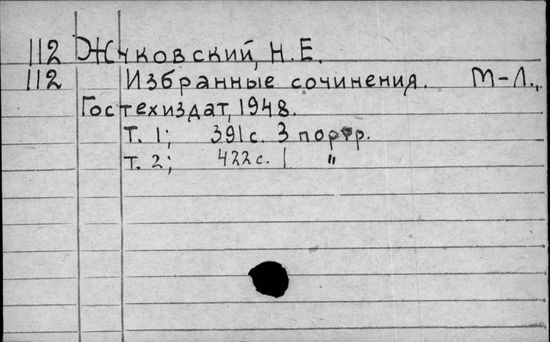 112 Жуковский, Н.Е.
112 Избранные сочинения. М-Л.,
Гостехиздат, 1948.
Т. 1; 391 с. 3 портр.
Т. 2; 422 с. 1 "